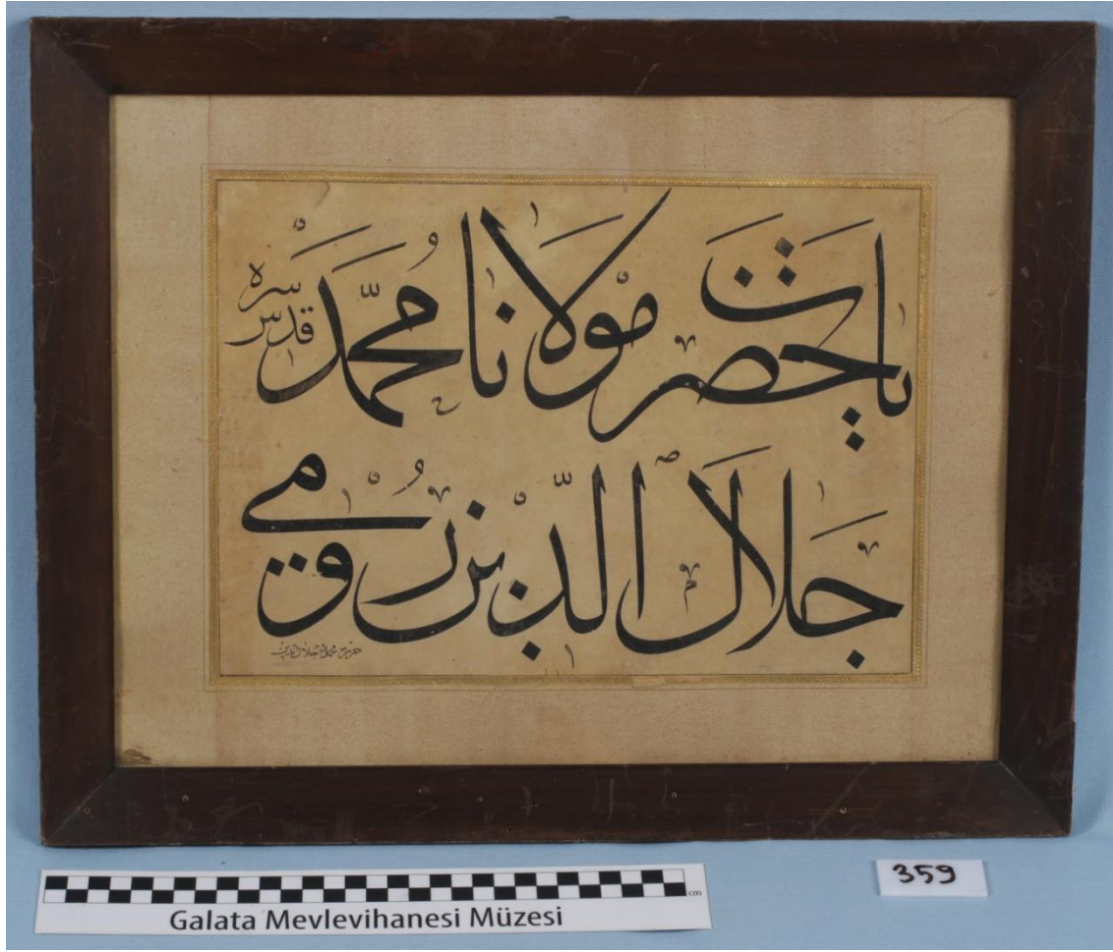 يا حضرت مولانا محمد
قدس سره
جلال الدين رومي
359
cm
Galata Mevlevihanesi Müzesi